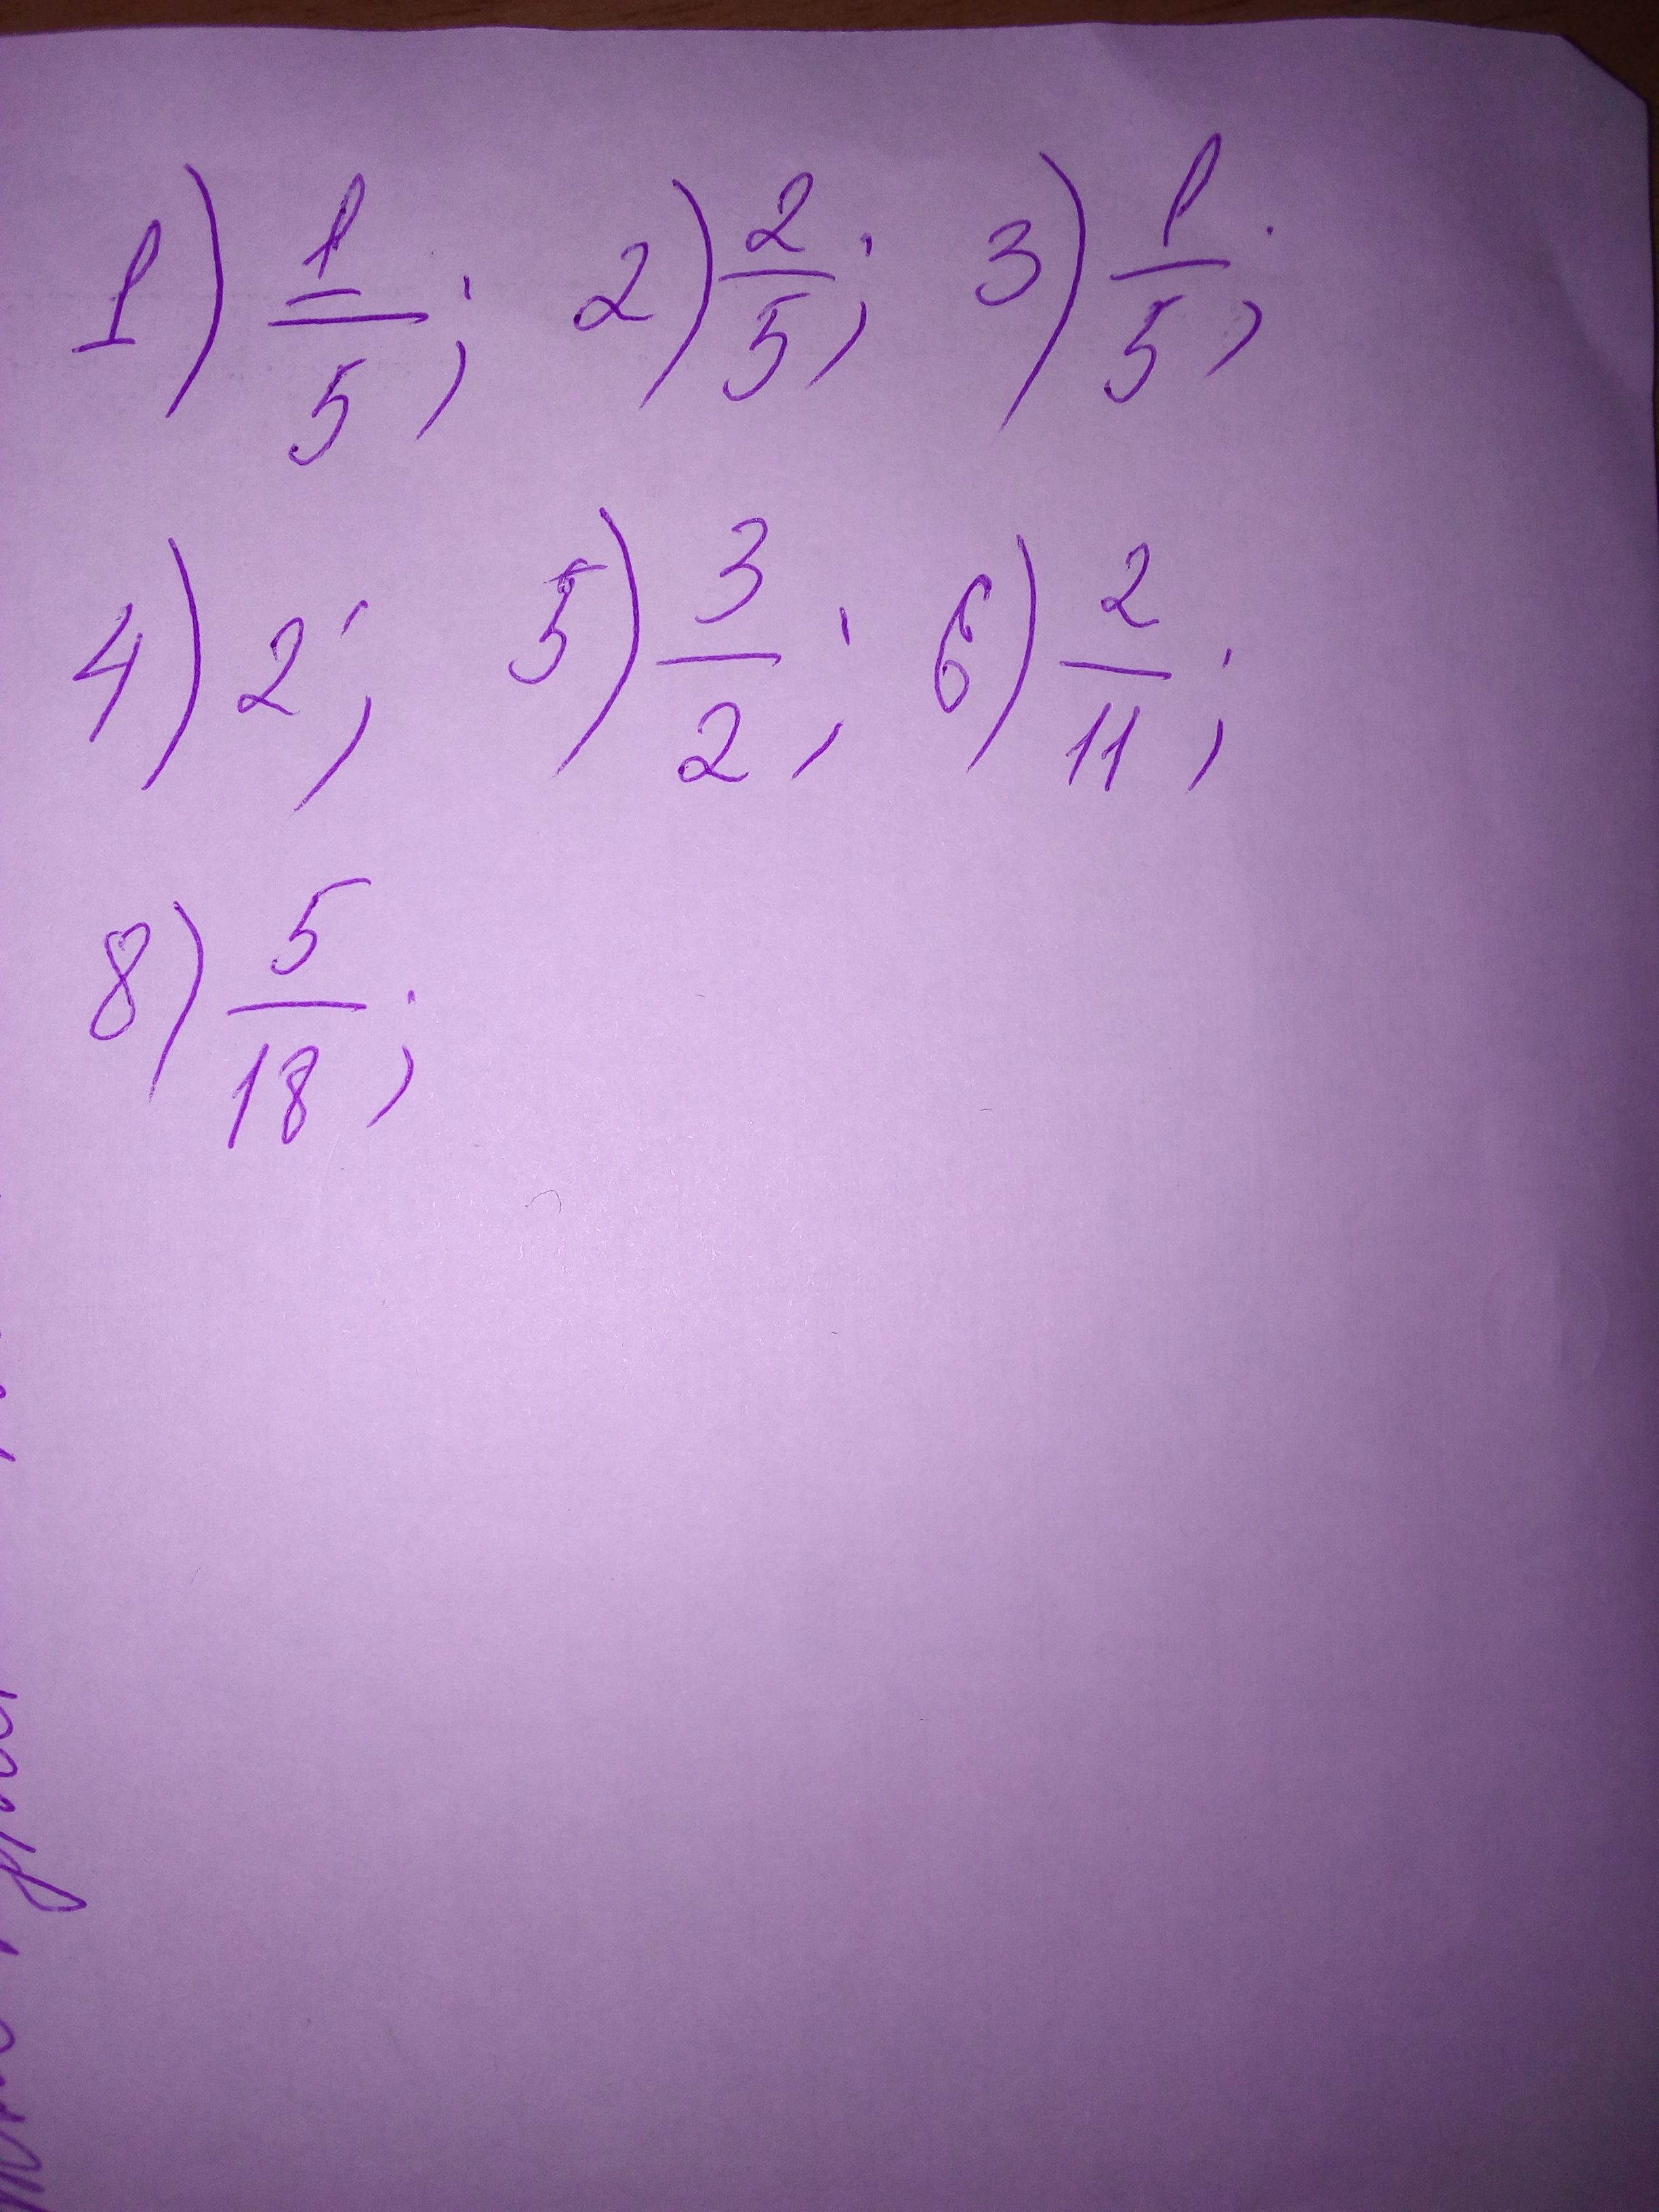 1) 1/5; 2) 2/5; 3) 1/5;
4) 2; 5) 3/2; 6) 2/11;
8) 5/18;